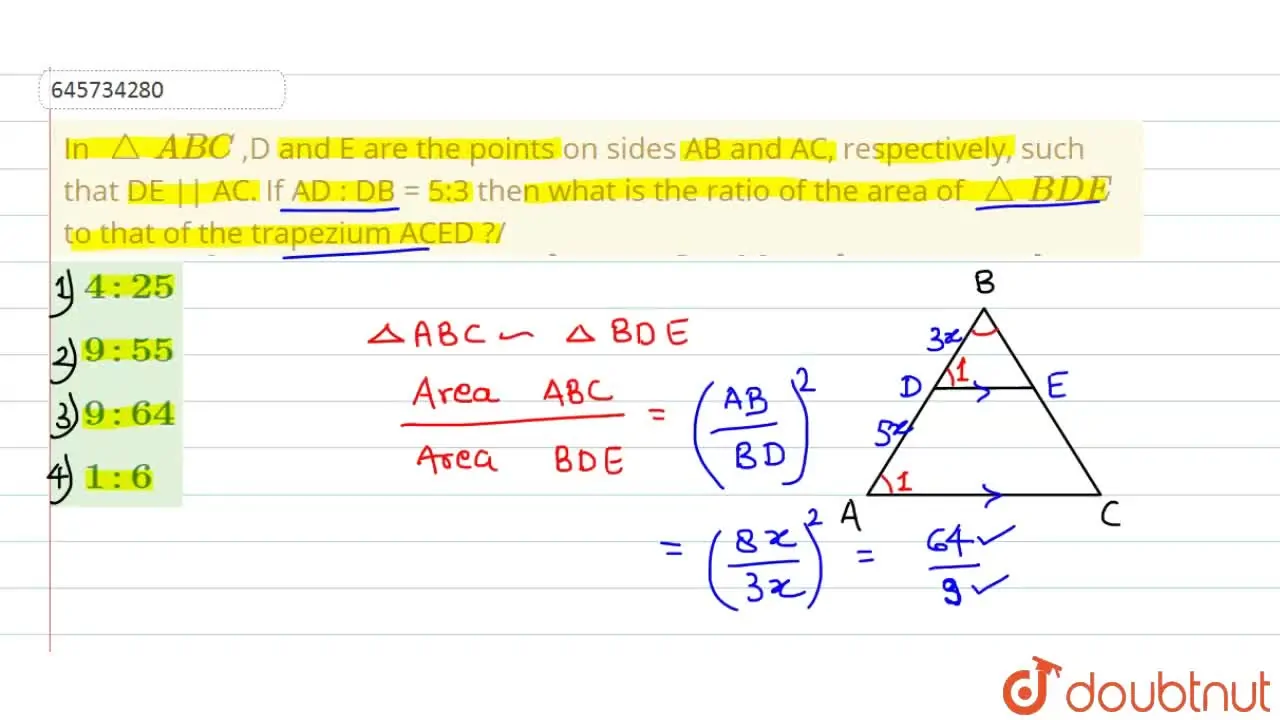 645734280
In △ ABC ,D and E are the points on sides AB and AC, respectively, such
that DE || AC. If AD : DB = 5:3 then what is the ratio of the area of △ BDE
to that of the trapezium ACED ?/
1) 4 : 25
2) 9 : 55
3) 9 : 64
4) 1 : 6
△ABC ∼ △ BDE
Area ABC / Area BDE = (AB / BD)²
= (8x / 3x)² = 64 / 9
B
3x
1
D E
5x
1
A C
doubtnut